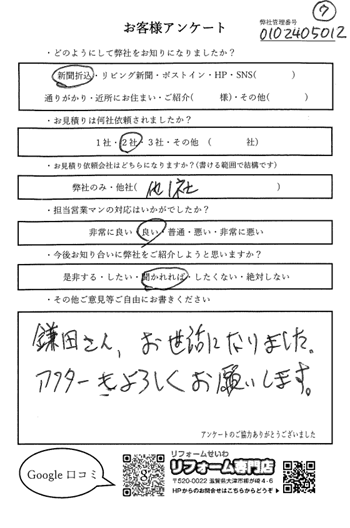 ⑦
お客様アンケート
弊社管理番号
0102405012
・どのようにして弊社をお知りになりましたか？
新聞折込・リビング新聞・ポストイン・HP・SNS(　　　)
通りがかり・近所にお住まい・ご紹介(　　　様)・その他(　　　)
・お見積りは何社依頼されましたか？
1社・2社・3社・その他　(　　　社)
・お見積り依頼会社はどちらになりますか？(書ける範囲で結構です)
弊社のみ・他社(　他1社　)
・担当営業マンの対応はいかがでしたか？
非常に良い・良い・普通・悪い・非常に悪い
・今後お知り合いに弊社をご紹介しようと思いますか？
是非する・したい・聞かれれば・したくない・絶対しない
・その他ご意見等ご自由にお書きください
鎌田さん、お世話になりました。
アフターもよろしくお願いします。
アンケートのご協力ありがとうございました
Google 口コミ
リフォームせいわ
リフォーム専門店
〒520-0022 滋賀県大津市柳が崎4-6
HPからのお問合せはこちらからどうぞ▶